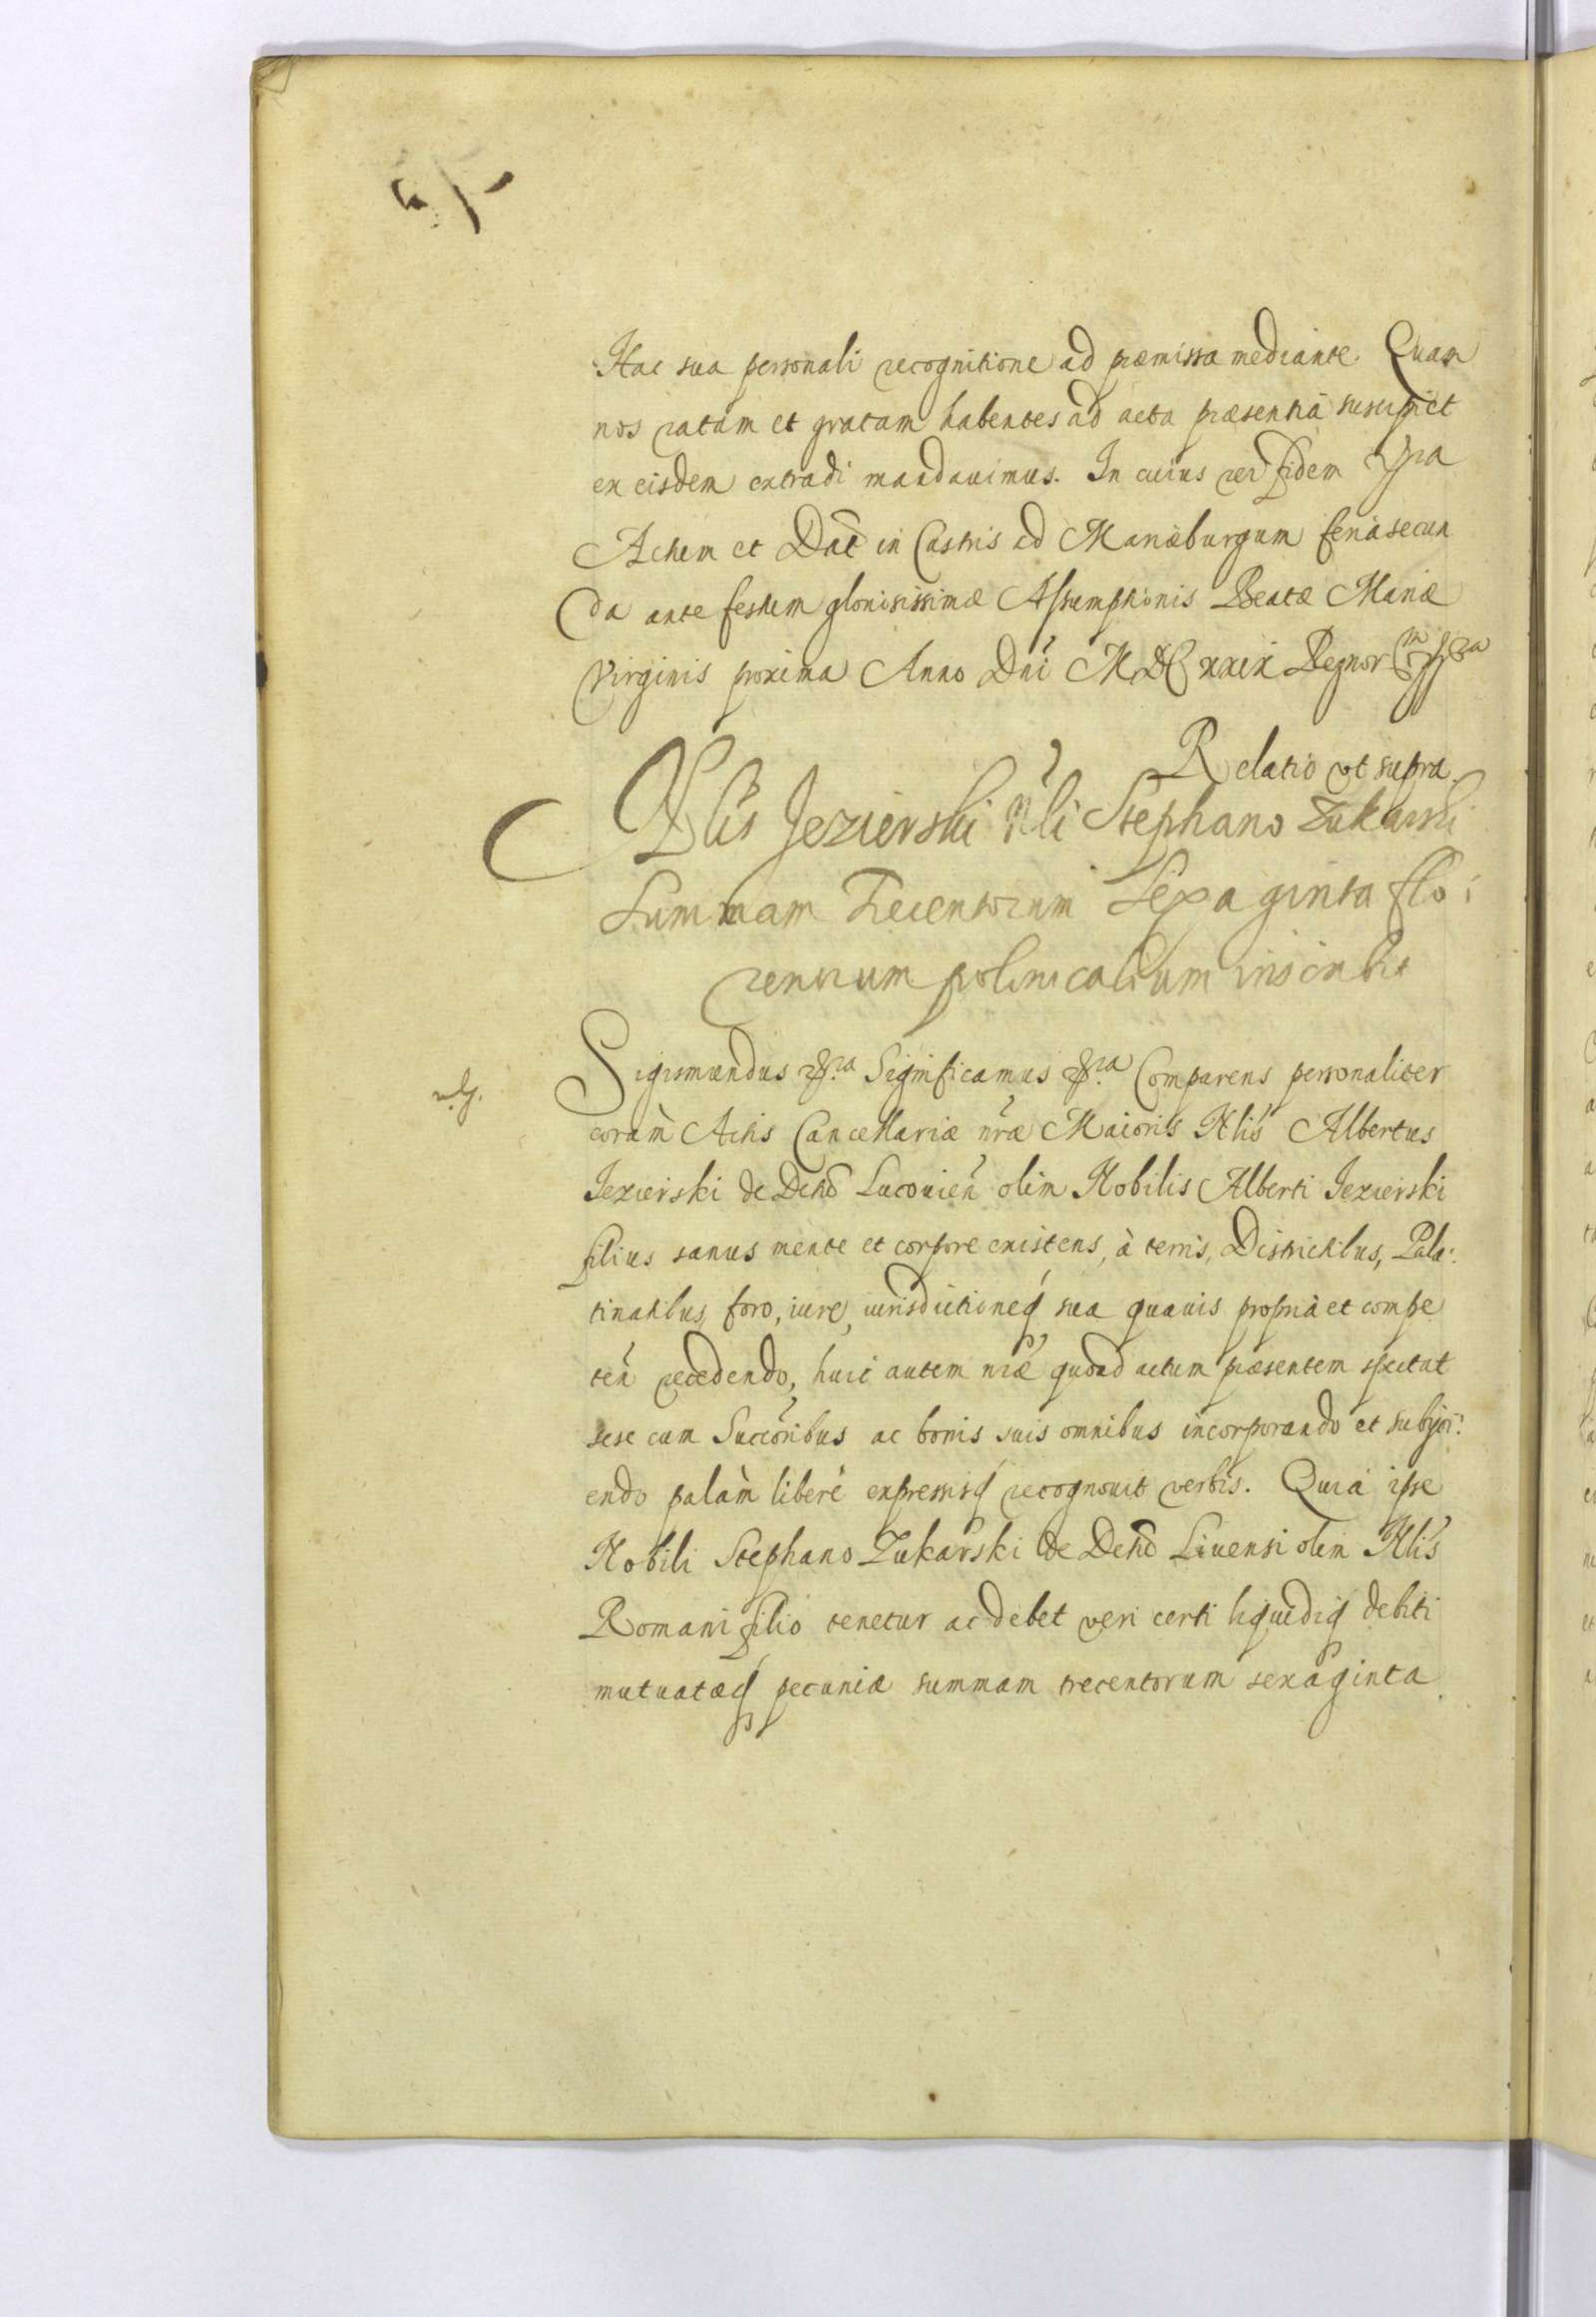 Hac sua personali recognitione ad præmissa mediante. Quam
nos ratam et gratam habentes ad acta præsentia suscipi et
ex eisdem extradi mandauimus. In cuius rei fidem
Actum et Dat in Castris ad Mariæburgum feria secun
da ante festum gloriosissimæ Assumptionis Beatæ Mariæ
Virginis proxima Anno Dni MDCxxix Regnor
Relatio vt supra.
Nlis Jezierski Nli Stephano Zukarski
Summam Trecentorum Sexaginta flo:
renorum polonicalium inscribit
Sigismundus &ra Significamus &ra Comparens personaliter
coram Actis Cancellariæ nræ Maioris Nlis Albertus
Jezierski de Dctio Lucouien olim Nobilis Alberti Jezierski
filius sanus mente et corpore existens, à terris, Districtibus, Pala:
tinatibus, foro, iure, iurisdictioneq sua quauis propria et compe
ten recedendo, huic autem nræ quoad actum præsentem spectat
sese cum Succoribus ac bonis suis omnibus incorporando et subjci:
endo palàm liberè expressisq recognouit verbis. Quia ipse
Nobili Stephano Zukarski de Dctio Liuensi olim Nlis
Romani filio tenetur ac debet veri certi liquidiq debiti
mutuatæq pecuniæ summam trecentorum sexaginta